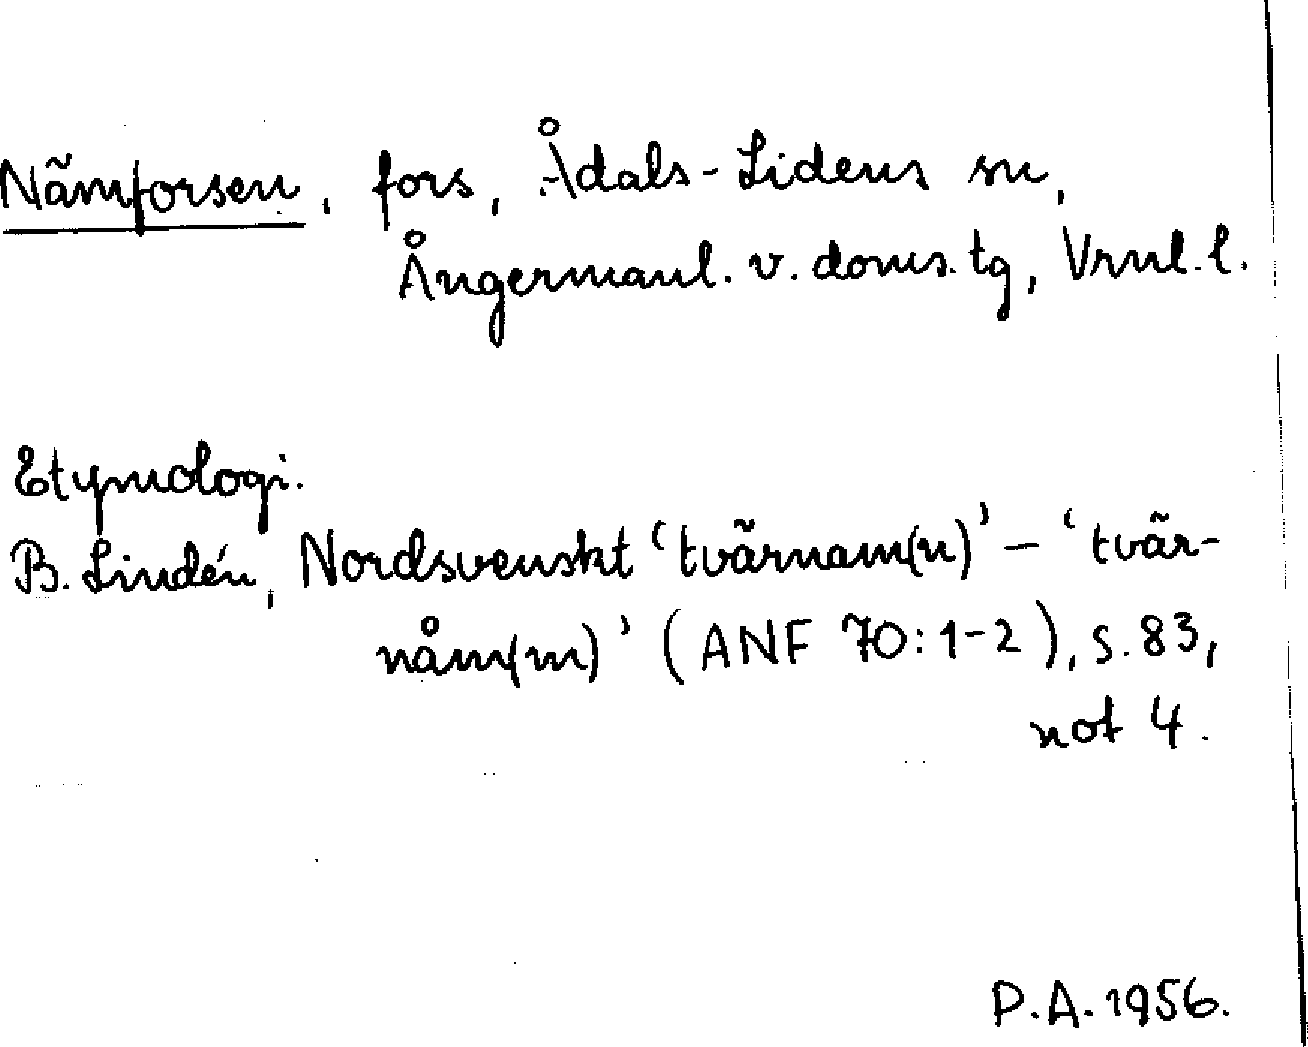 Nämforsen, fors, Ådals-Lidens sn,
Ångermanl. v. doms. tg, Vrnl. l.
Etymologi.
B. Lindén, Nordsvenskt ‘tvärnam(n)’ – ‘tvär-
nåm(m)’ (ANF 70:1-2), s. 83,
not 4.
P.A. 1956.